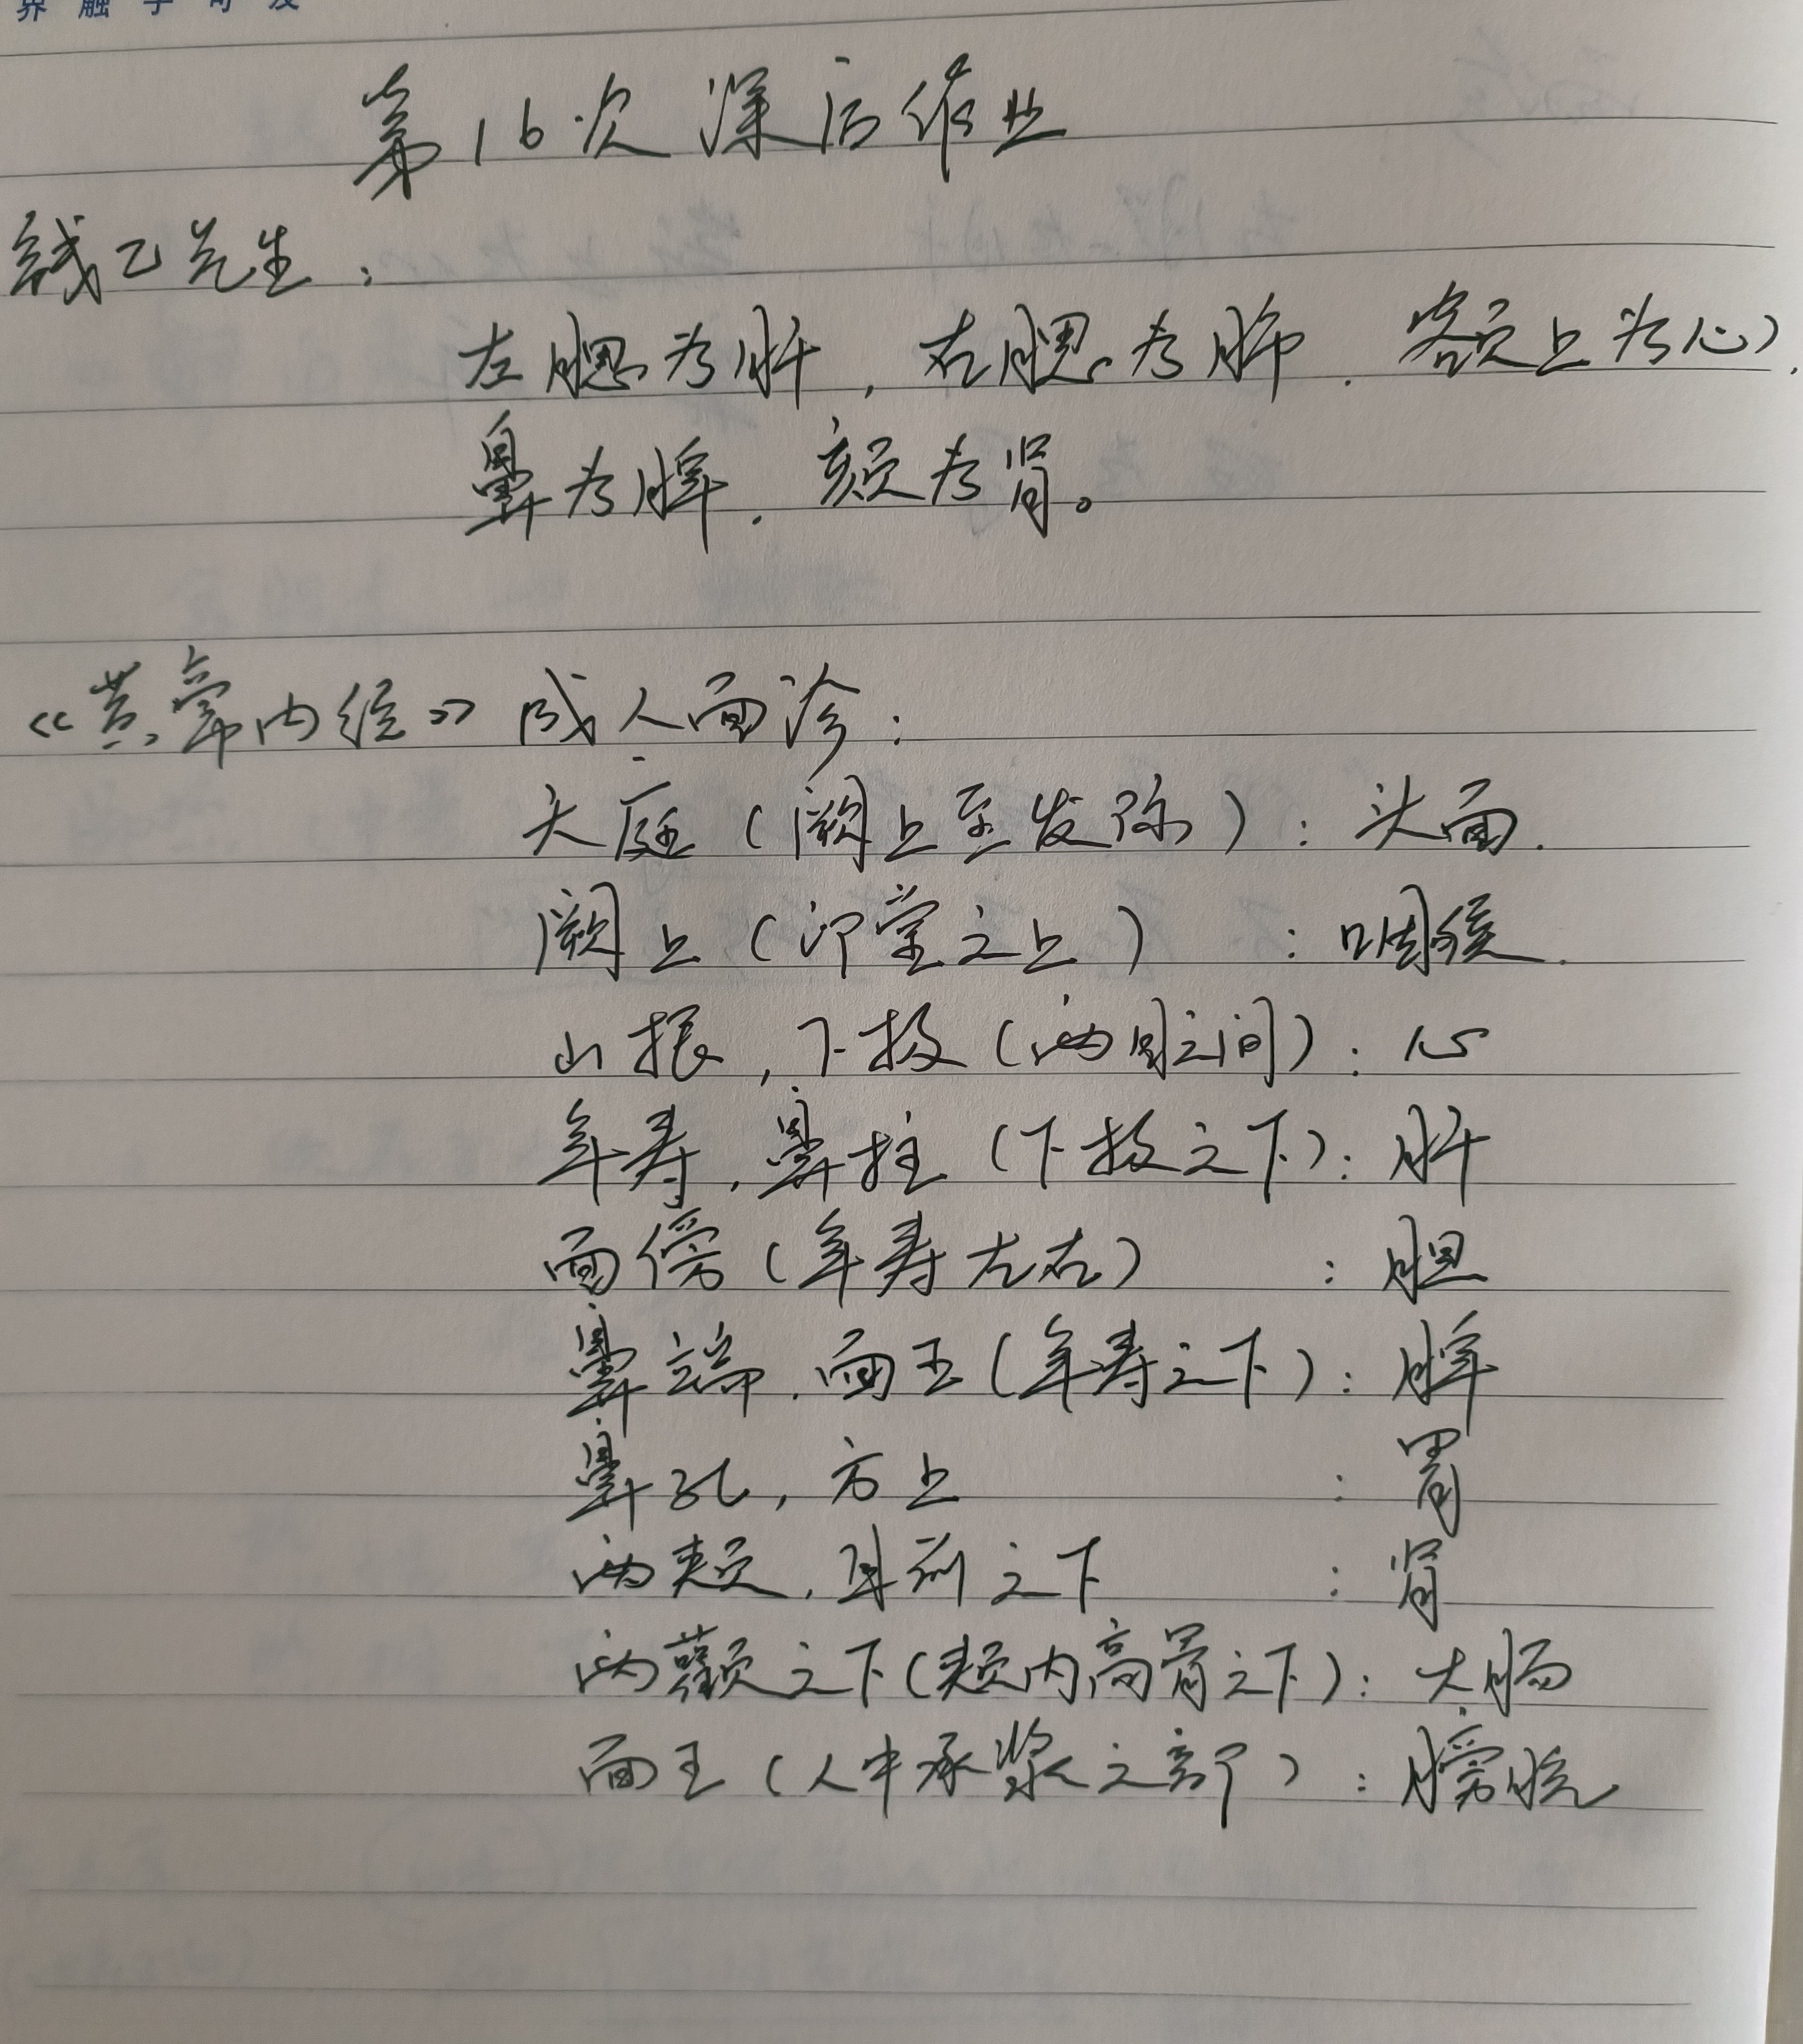 界触手可及
第16次课后作业
钱乙先生：
左腮为肝，右腮为肺，额上为心，
鼻为脾，颏为肾。
《黄帝内经》成人面诊：
天庭（阙上至发际）：头面．
阙上（印堂之上）：咽喉．
山根，下极（两目之间）：心
年寿，鼻柱（下极之下）：肝
面傍（年寿左右）：胆
鼻端，面王（年寿之下）：脾
鼻孔，方上：胃
两颊，耳前之下：肾
两颧之下（颊内高骨之下）：大肠
面王（人中承浆之部）：膀胱